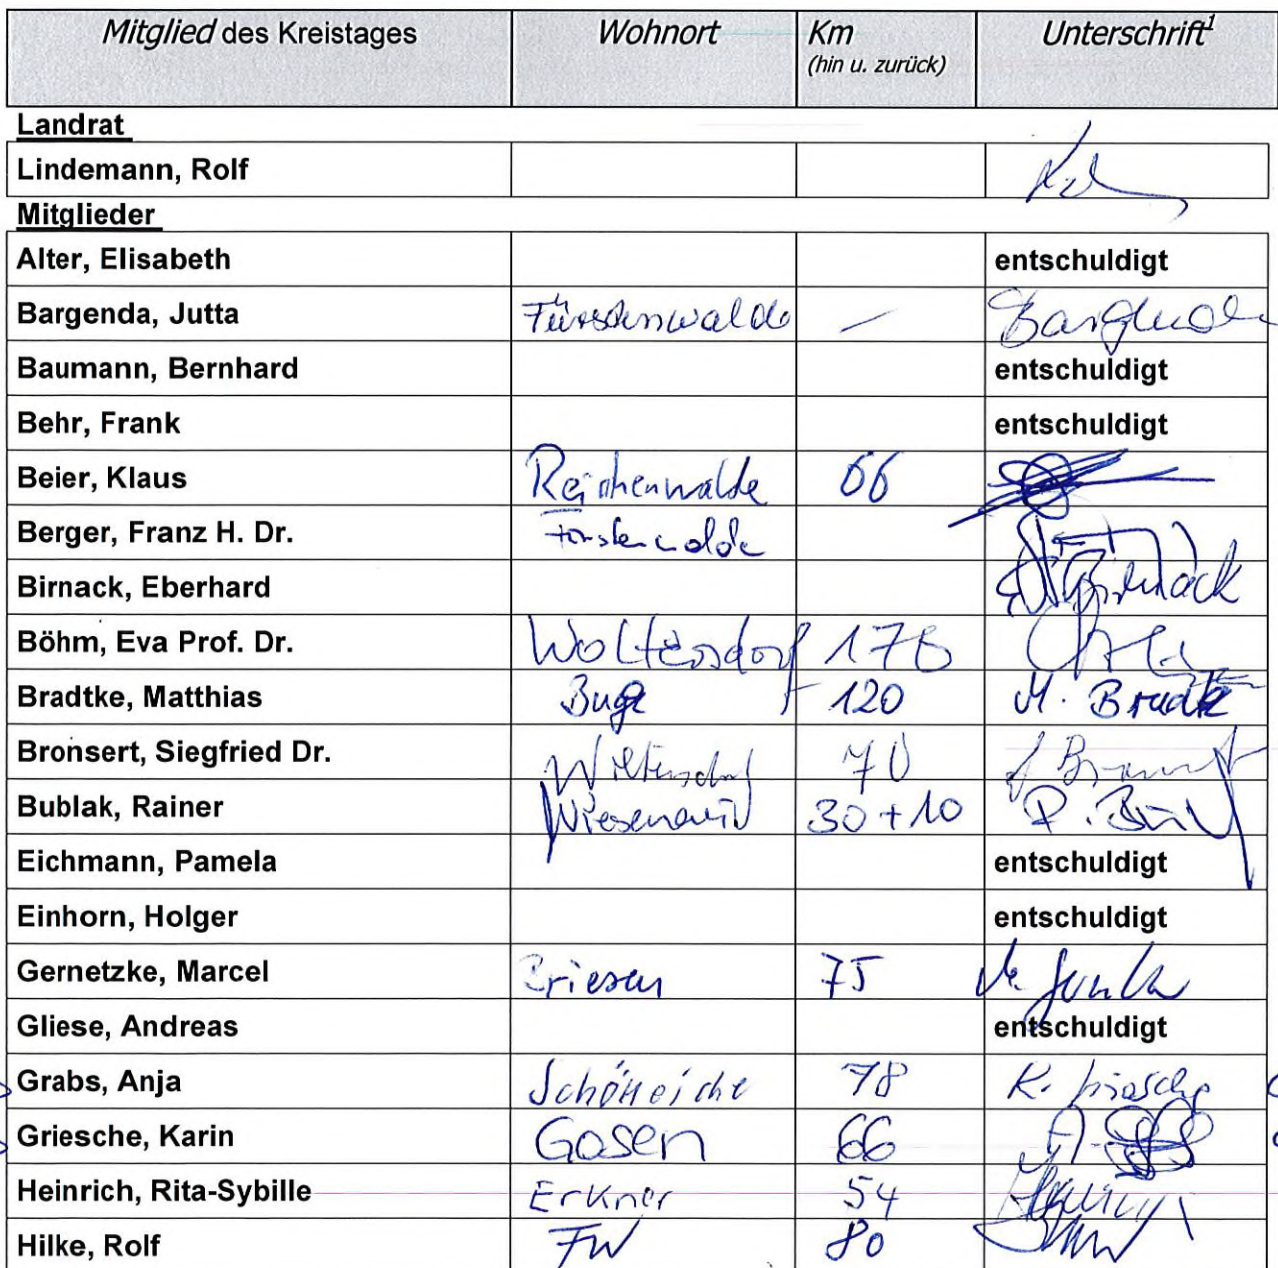 Mitglied des Kreistages Wohnort Km Unterschrift¹
(hin u. zurück)
Landrat
Lindemann, Rolf
Mitglieder
Alter, Elisabeth entschuldigt
Bargenda, Jutta Fürstenwalde –
Baumann, Bernhard entschuldigt
Behr, Frank entschuldigt
Beier, Klaus Reichenwalde 66
Berger, Franz H. Dr. Fürstenwalde
Birnack, Eberhard Birnack
Böhm, Eva Prof. Dr. Woltersdorf 176
Bradtke, Matthias 120 M. Bradtke
Bronsert, Siegfried Dr. Woltersdorf 70
Bublak, Rainer Wiesenau 30+10
Eichmann, Pamela entschuldigt
Einhorn, Holger entschuldigt
Gernetzke, Marcel Briesen 75
Gliese, Andreas entschuldigt
Grabs, Anja Schöneiche 78 K. Griesche
Griesche, Karin Gosen 66
Heinrich, Rita-Sybille Erkner 54
Hilke, Rolf FW 80